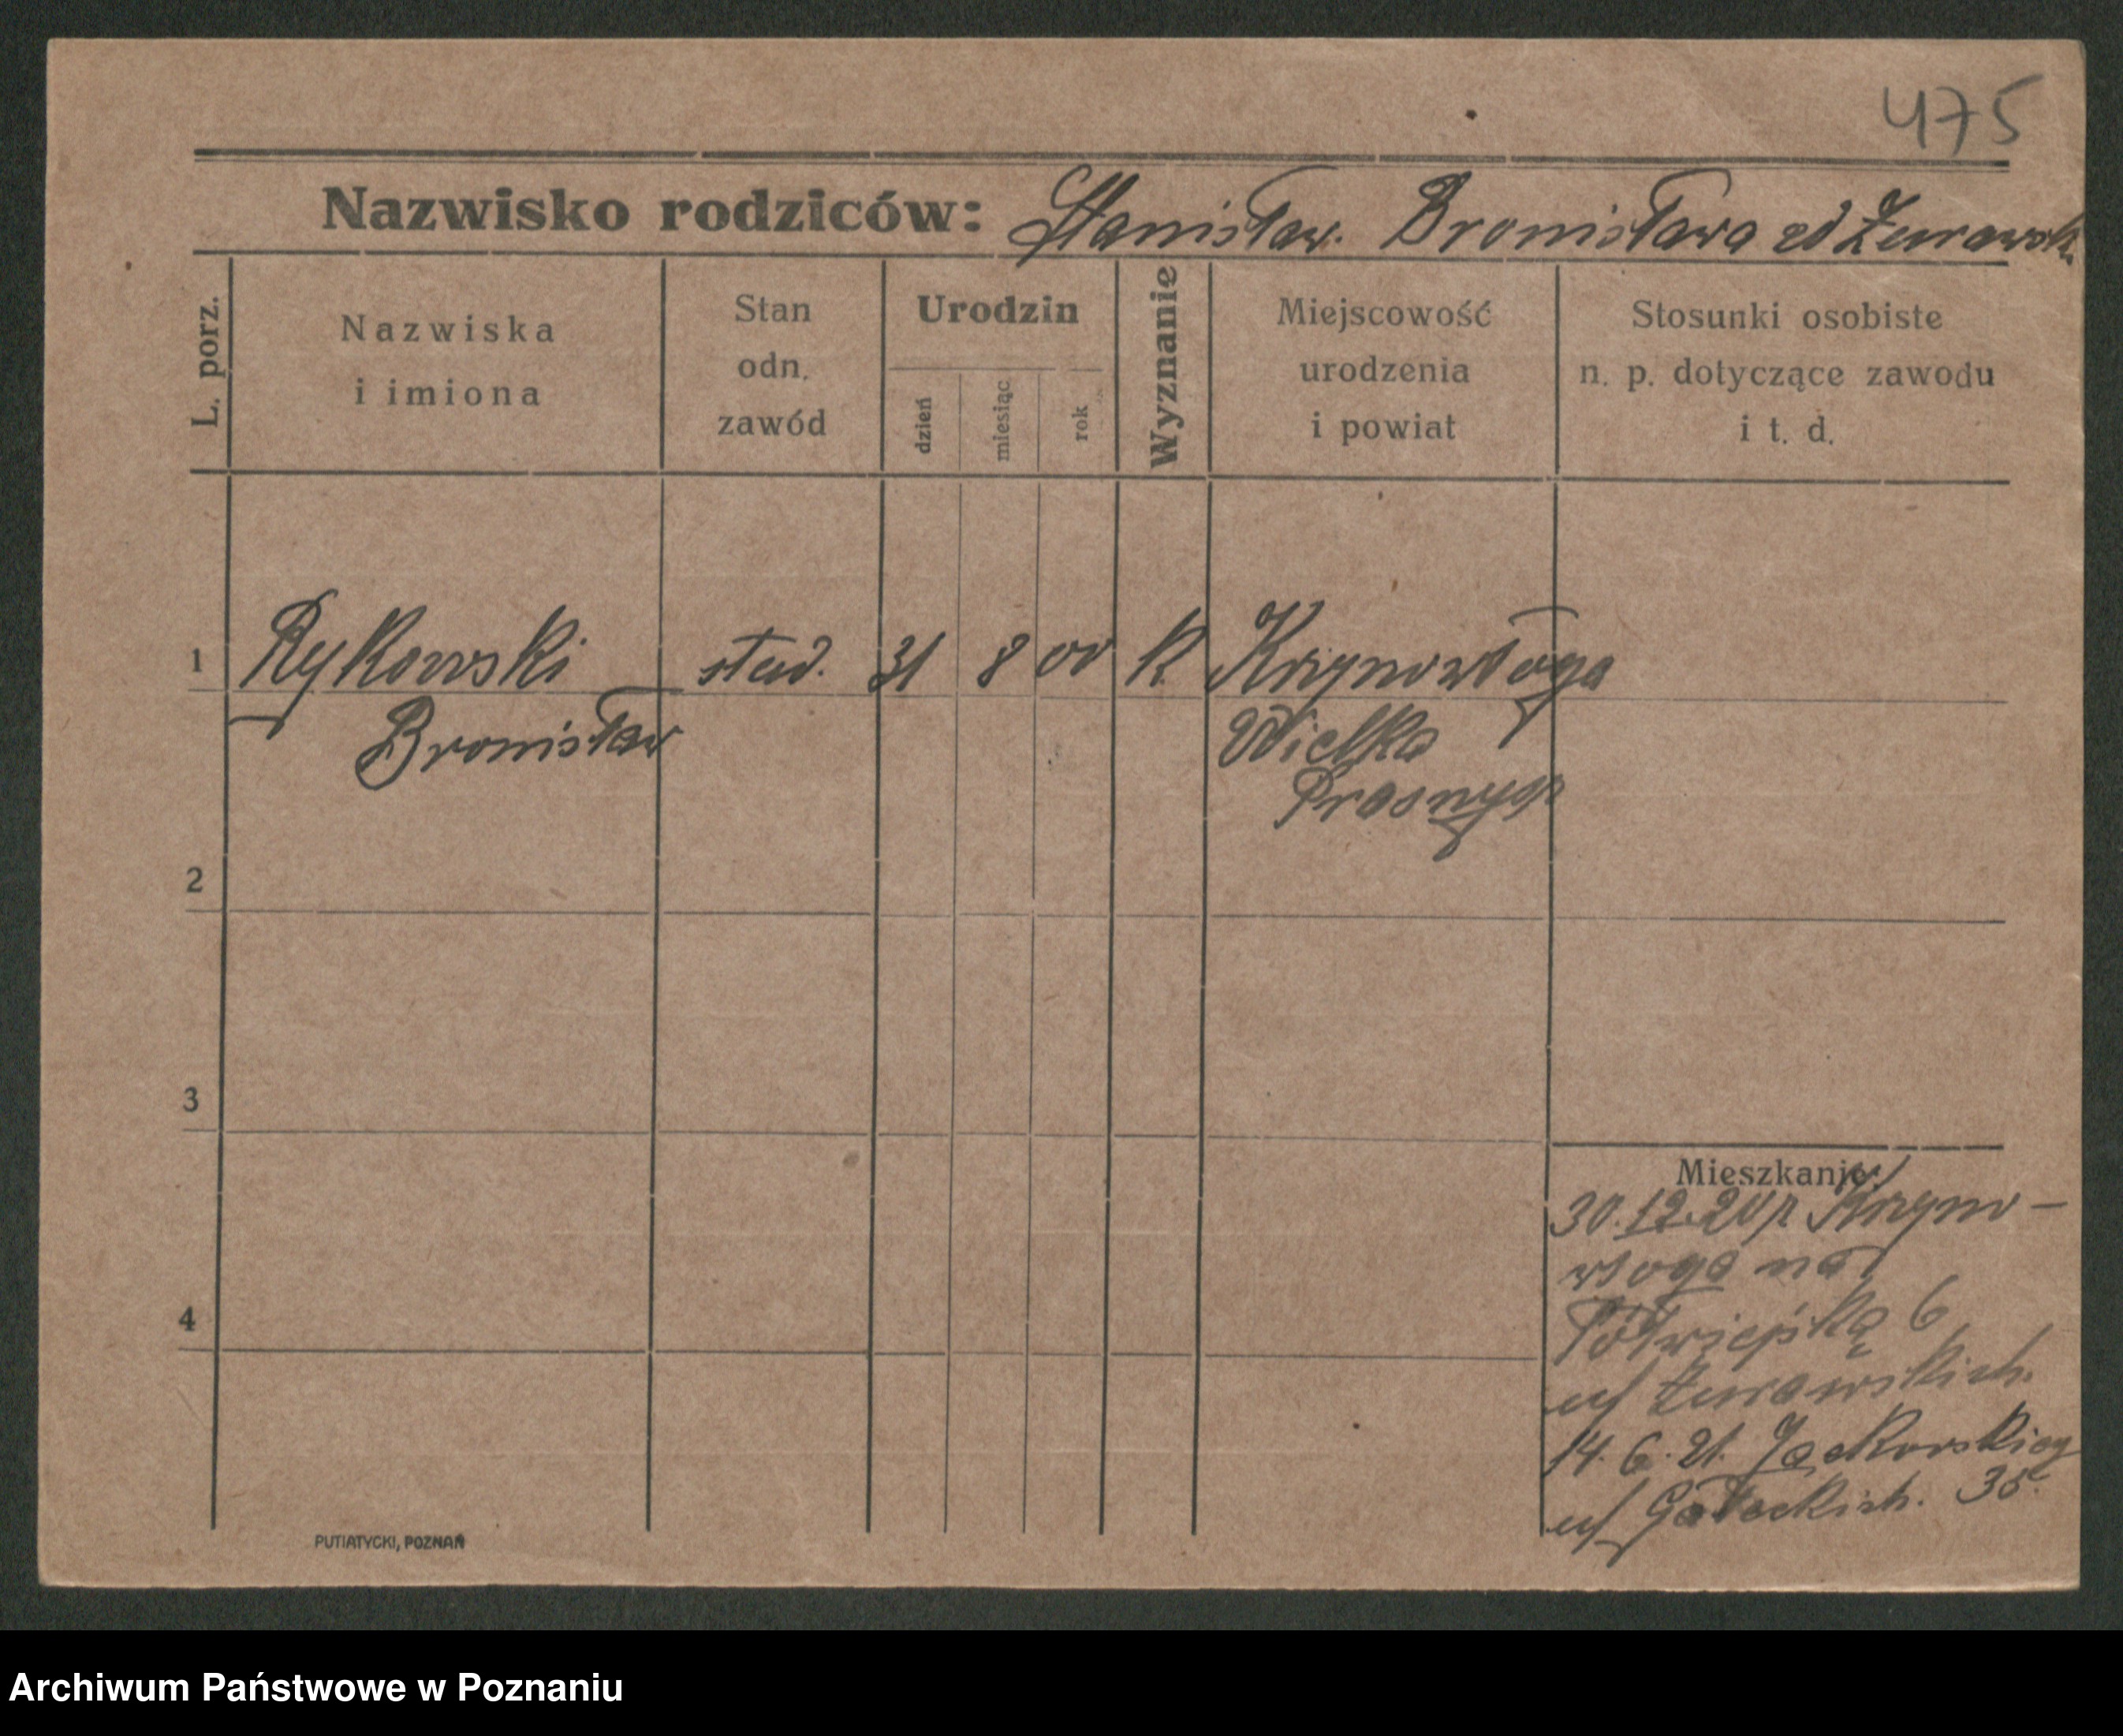 475
Nazwisko rodziców: Stanisław. Bronisława zd Żurawsk.
L. porz.
Nazwiska
i imiona
Stan
odn.
zawód
Urodzin
dzień
miesiąc
rok
Wyznanie
Miejscowość
urodzenia
i powiat
Stosunki osobiste
n. p. dotyczące zawodu
i t. d.
1 Rykowski stud. 31 8 00 k Krzynowłoga
Bronisław Wielka
Prasnysz
2
3
4
Mieszkanie:
30.12.20 z Krzyno-
włoga na
Półwiejską 6
u/ Żurawskich.
14.6.21. Jackowskieg
u/ Gałeckich. 35.
PUTIATYCKI, POZNAŃ
Archiwum Państwowe w Poznaniu